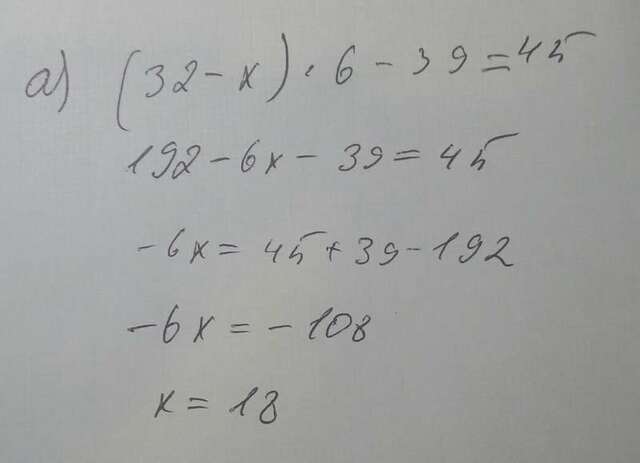 а) (32 - x) · 6 - 39 = 45
192 - 6x - 39 = 45
-6x = 45 + 39 - 192
-6x = -108
x = 18